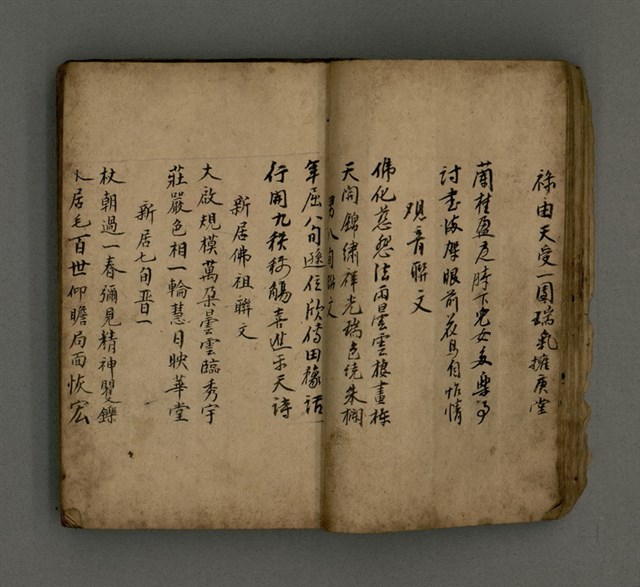 祿由天受一團瑞氣擁庚堂
蘭桂盈庭時下兒女多樂事
詩書滿架眼前花鳥自怡情
观音聯文
佛化慈悲法雨曇雲棲畫棟
天開錦绣祥光瑞色繞朱欄
男八旬聯文
年屆八旬遜位欣傳田椽話
行開九秩稱觴喜進禾天詩
新居佛祖聯文
大啟規模萬朵曇雲臨秀宇
莊嚴色相一輪慧日映華堂
新居七旬晋一
杖朝過一春彌見精神矍鑠
居毛百世仰瞻局面恢宏